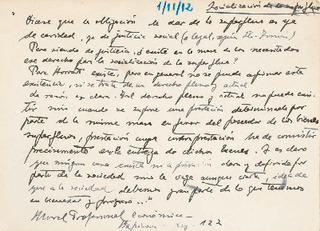 1/11/12 Socialización de lo superfluo
"Dícese que la obligación de dar de lo superfluo es ya
de caridad, ya de justicia social (o legal, según Sto. Tomás).
Pero siendo de justicia, ¿existe en la masa de los necesitados
ese derecho para la socialización de lo superfluo?
Para existe, pero en general no se puede afirmar esta
existencia, si se trata de un derecho pleno y actual.
La razón es clara. Tal derecho pleno y actual no puede exis-
tir sino cuando se supone una prestación determinada por
parte de la misma masa en favor del poseedor de los bienes
superfluos, prestación cuya contraprestación ha de consistir
precisamente en la entrega de dichos bienes. Y es claro
que ninguna cosa existe ni a prestación clara y definida por
parte de la sociedad ni le urge aunque exista, idea de
que a la sociedad debemos gran parte de lo que tenemos
en bienestar y progreso..."
Moral Profesional Económica -
pág 122